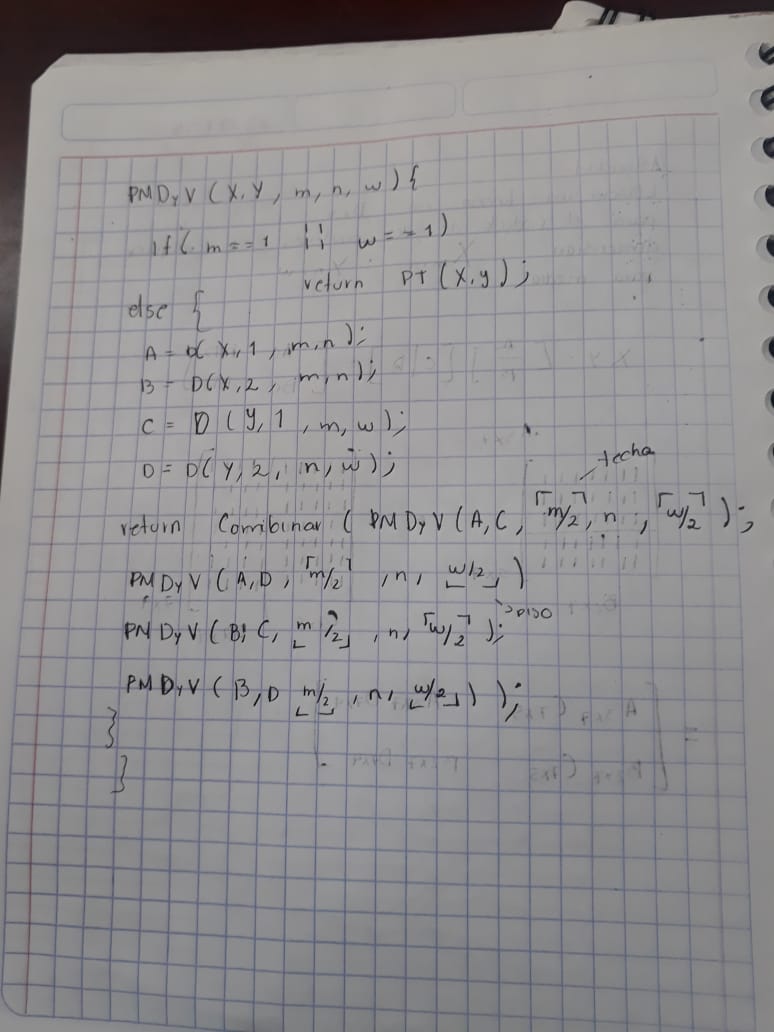 PMDyV (X, Y, m, n, w) {
if ( m == 1 || w == 1)
return PT (X, y);
else {
A = D( X, 1, m, n);
B = D(X, 2, m, n);
C = D (Y, 1, m, w);
D = D( Y, 2, n, w);
techo
return Combinar ( PMDyV (A, C, ⌈m/2⌉, n, ⌈w/2⌉);
PMDyV (A, D, ⌈m/2⌉, n, ⌊w/2⌋)
piso
PMDyV (B, C, ⌊m/2⌋, n, ⌈w/2⌉);
PMDyV (B, D ⌊m/2⌋, n, ⌊w/2⌋) );
}
}